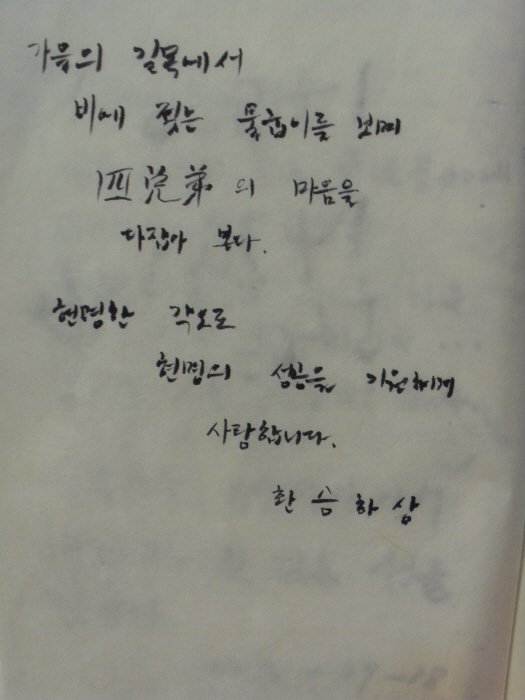 가을의 길목에서
비에 젖는 풀잎이를 보며
四兄弟의 마음을
다잡아 본다.
현명한 각오로
현명의 성공을 기원하며
사랑합니다.
한 승 하 상